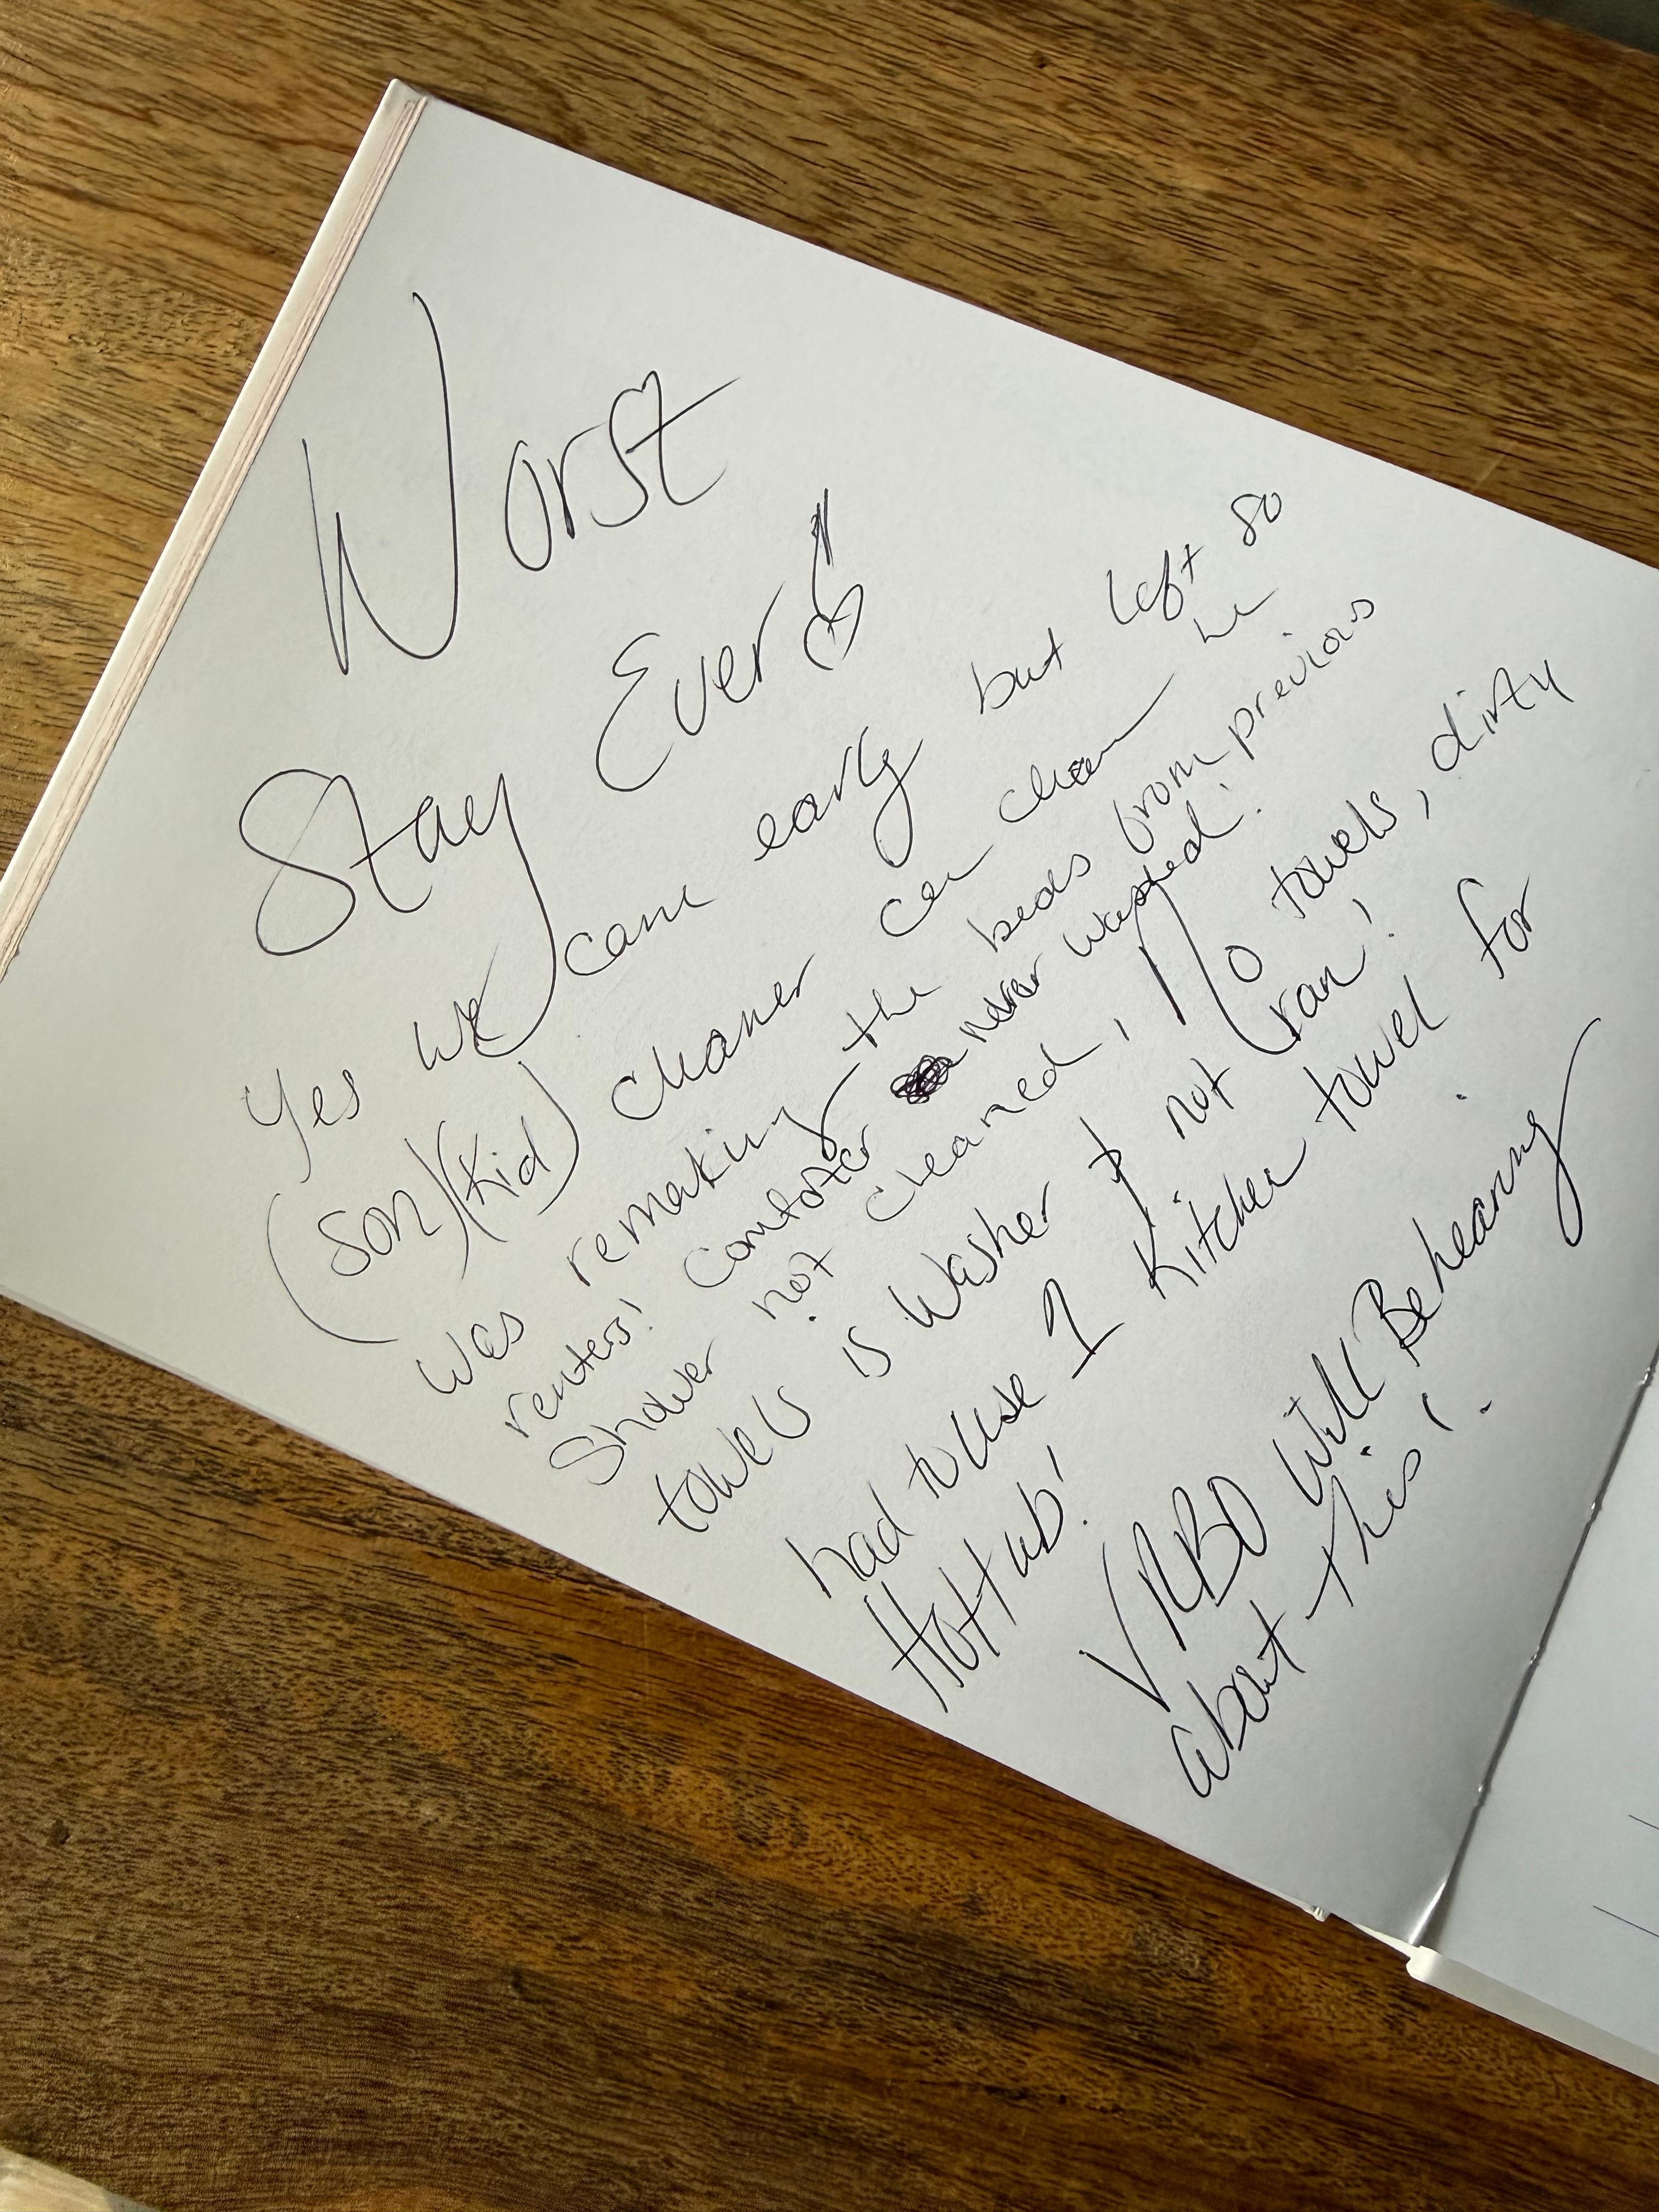 Worst
Stay Ever!
Yes we came early but left so
(son)(kid) cleaner can clean he
was remaking the beds from previous
renters! Comforter never washed!
Shower not cleaned, No towels, dirty
towels is washer & not ran!
had to use 1 kitchen towel for
Hot tub!
VRBO will Be hearing
about this!